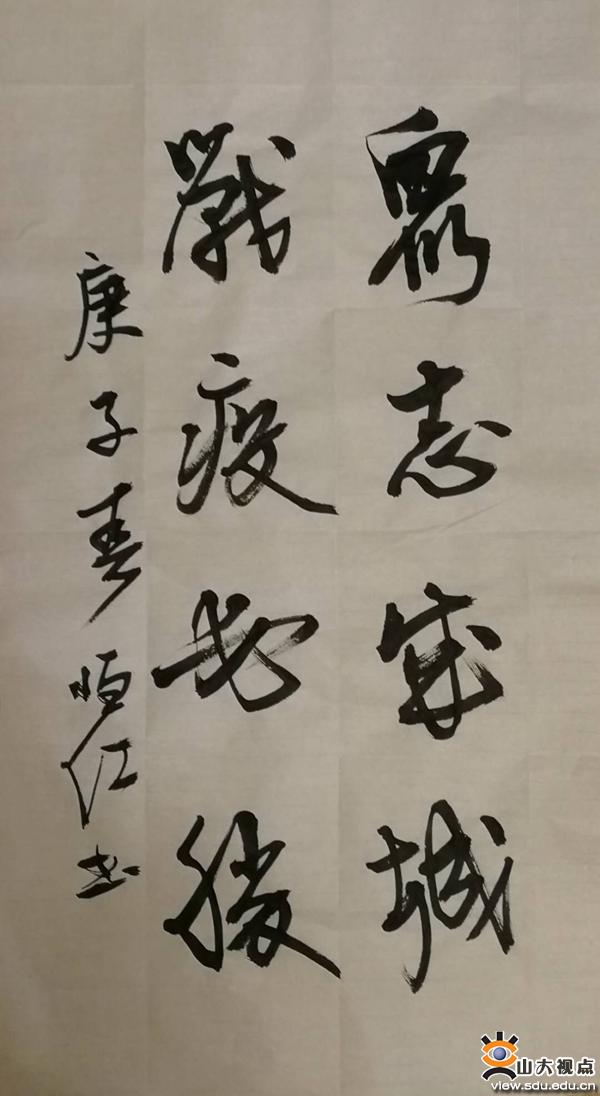 眾志成城
戰疫必勝
庚子春恒江書
山大视点
view.sdu.edu.cn